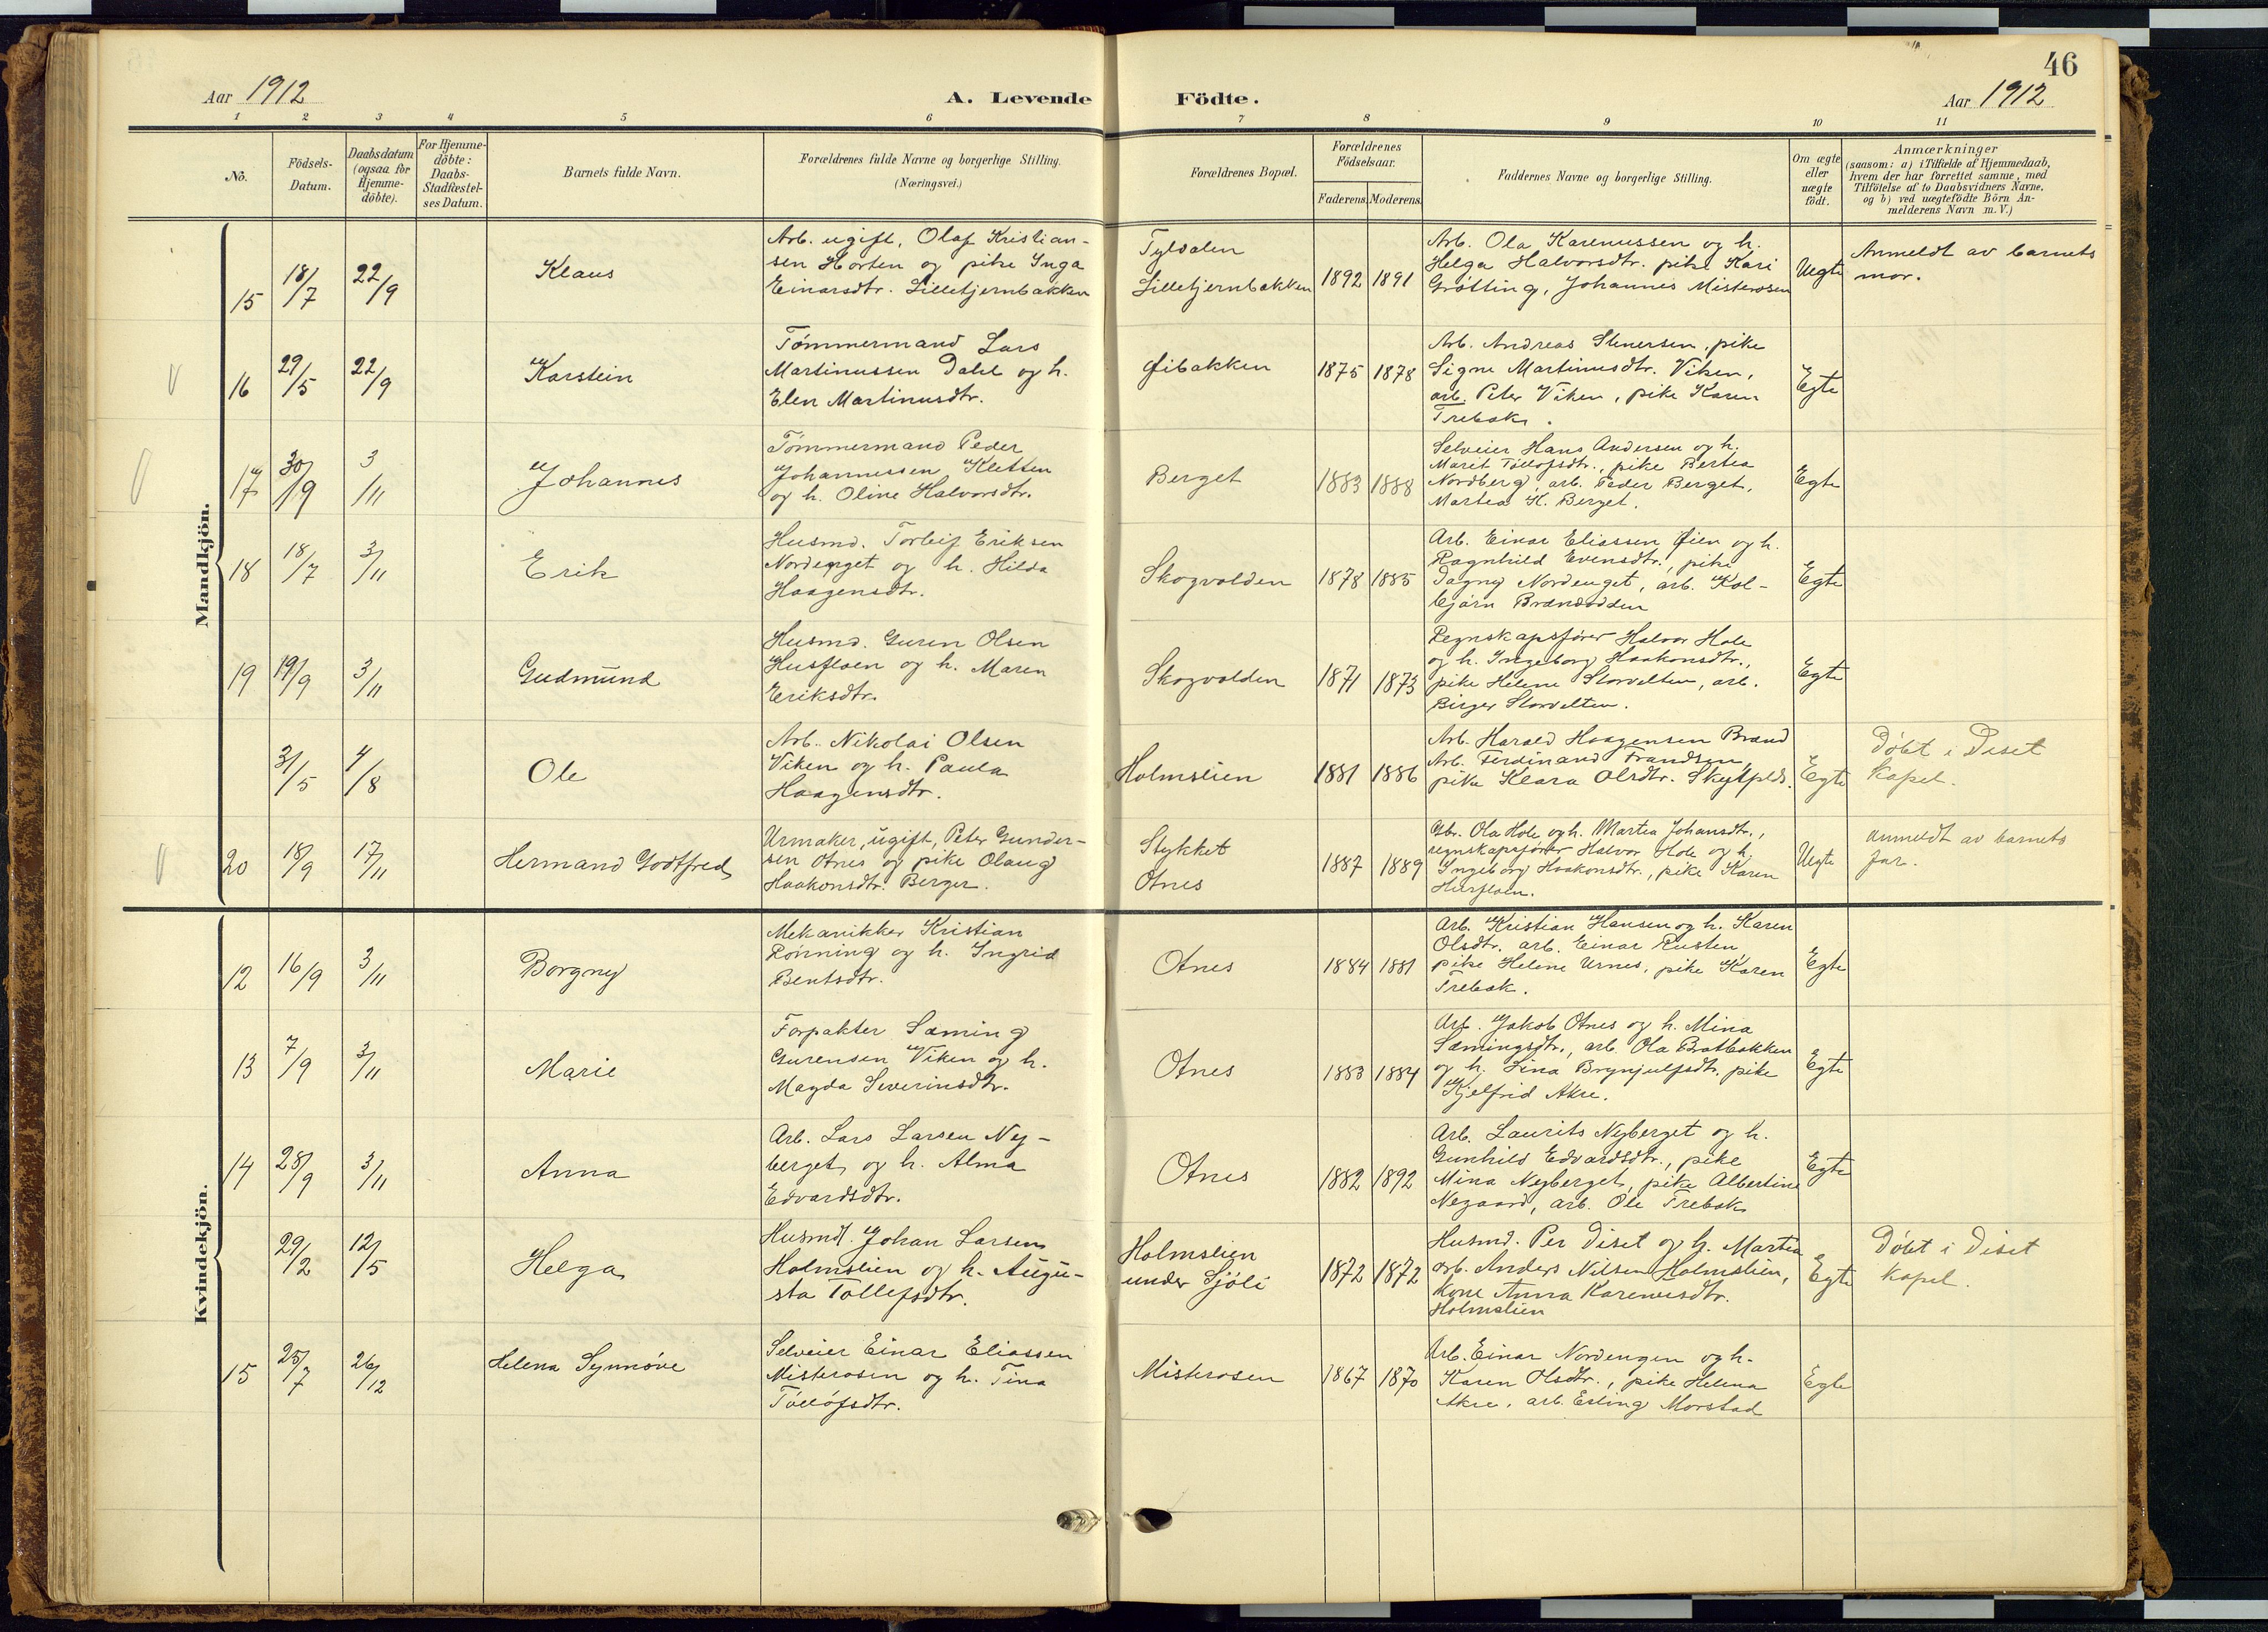 46
Aar 1912
A. Levende Födte.
Aar 1912
1 2 3 4 5 6 7 8 9 10 11
No.
Födsels-
Datum.
Daabsdatum
(ogsaa for
Hjemme-
döbte).
For Hjemme-
döbte:
Daabs-
Stadfæstel-
ses Datum.
Barnets fulde Navn.
Forældrenes fulde Navne og borgerlige Stilling.
(Næringsvei.)
Forældrenes Bopæl.
Forældrenes
Födselsaar.
Faderens. Moderens.
Faddernes Navne og borgerlige Stilling.
Om ægte
eller
uægte
födt.
Anmærkninger
(saasom: a) i Tilfælde af Hjemmedaab,
hvem der har forrettet samme, med
Tilföielse af to Daabsvidners Navne.
og b) ved uægtefödte Börn An-
melderens Navn m. V.)
Mandkjön.
15
18/7
22/9
Klaus
Arb. ugift, Olaf Kristian-
sen Horten og pike Inga
Einarsdtr. Lilletjernbakken
Tyldalen
Lilletjernbakken
1892
1891
Arb. Ola Karenussen og h.
Helga Halvorsdtr. pike Kari
Grøtting, Johannes Misterosen
Uegte
Anmeldt av barnets
mor.
16
29/5
22/9
Karstein
Tømmermand Lars
Martinussen Dahl og h.
Elen Martinusdtr.
Øibakken
1875
1878
Arb. Andreas Stenersen, pike
Signe Martinusdtr. Viken,
arb. Peter Viken, pike Karen
Trebak.
Egte
17
30/9
3/11
Johannes
Tømmermand Peder
Johannessen Kletten
og h. Oline Halvorsdtr.
Berget
1883
1888
Selveier Hans Andersen og h.
Marit Tollofsdtr., pike Bertea
Nordberg, arb. Peder Berget,
Martea H. Berget.
Egte
18
18/7
3/11
Erik
Husmd. Torleif Eriksen
Nordenget og h. Hilda
Haagensdtr.
Skogvolden
1878
1885
Arb. Einar Eliassen Øien og h.
Ragnhild Evensdtr., pike
Dagny Nordenget, arb. Kol-
bjørn Brændodden
Egte
19
19/9
3/11
Gudmund
Husmd. Guren Olsen
Husfloen og h. Maren
Eriksdtr.
Skogvolden
1871
1873
Regnskapsfører Halvor Hole
og h. Ingeborg Haakonsdtr.,
pike Helene Storvelten, arb.
Birger Storvelten.
Egte
31/5
4/8
Ole
Arb. Nikolai Olsen
Viken og h. Paula
Haagensdtr.
Holmslien
1881
1886
Arb. Harald Haagensen Brænd
Arb. Ferdinand Frandsen,
pike Klara Olsdtr.
Egte
Døbt i Diset
kapel.
20
18/9
17/11
Hermand Godtfred
Urmaker, ugift, Peter Gunder-
sen Otnes og pike Olaug
Haakonsdtr. Berger.
Stykket
Otnes
1887
1889
Gbr. Ola Hole og h. Martea Johansdtr.,
regnskapsfører Halvor Hole og h.
Ingeborg Haakonsdtr., pike Karen
Husfloen.
Uegte
Anmeldt av barnets
far.
Kvindekjön.
12
16/9
3/11
Borgny
Mekanikker Kristian
Rønning og h. Ingrid
Bentsdtr.
Otnes
1884
1881
Arb. Kristian Hansen og h. Karen
Olsdtr. arb. Einar Rusten,
pike Helene Urnes, pike Karen
Trebak.
Egte
13
7/9
3/11
Marie
Forpakter Sæming
Gurensen Viken og h.
Magda Severinsdtr.
Otnes
1883
1884
Arb. Jakob Otnes og h. Mina
Sæmingsdtr., arb. Ola Bratbakken
og h. Lina Brynjulfsdtr. pike
Kjelfrid Akre.
Egte
14
28/9
3/11
Anna
Arb. Lars Larsen Ny-
berget og h. Alma
Edvardsdtr.
Otnes
1882
1892
Arb. Laurits Nyberget og h.
Gunhild Edvardsdtr., pike
Mina Nyberget, pike Albertine
Negaard, arb. Ole Trebak
Egte
29/2
12/5
Helga
Husmd. Johan Larsen
Holmslien og h. Augu-
sta Tollefsdtr.
Holmslien
under Sjöli
1872
1872
Husmd. Per Diset og h. Martea
Arb. Anders Nilsen Holmslien,
Kone Anna Karenusdtr.
Holmslien
Egte
Døbt i Diset
kapel.
15
25/7
26/12
Helena Synnøve
Selveier Einar Eliassen
Misterosen og h. Tina
Tollofsdtr.
Misterosen
1867
1870
Arb. Einar Nordengen og h.
Karen Olsdtr., pike Helena
Akre, arb. Erling Morstad
Egte